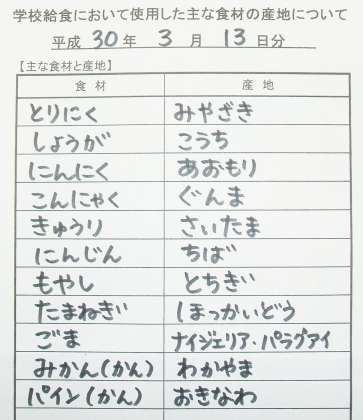 学校給食において使用した主な食材の産地について
平成 30 年 3 月 13 日分
【主な食材と産地】
食材 産地
とりにく みやざき
しょうが こうち
にんにく あおもり
こんにゃく ぐんま
きゅうり さいたま
にんじん ちば
もやし とちぎ
たまねぎ ほっかいどう
ごま ナイジェリア・パラグアイ
みかん(かん) わかやま
パイン(かん) おきなわ